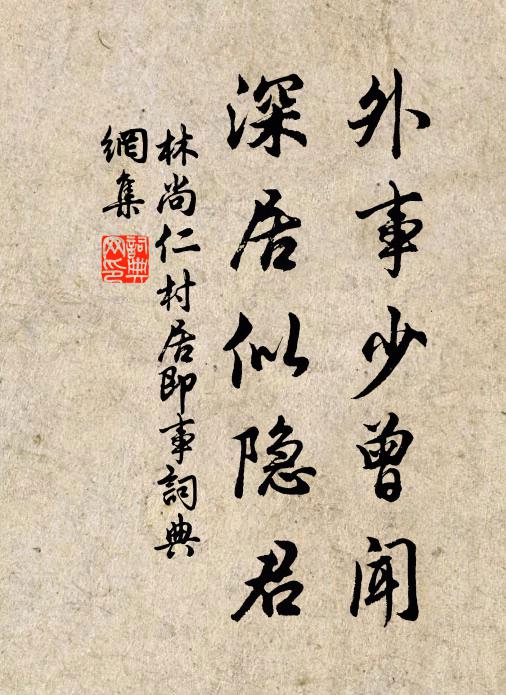 外事少曾闻
深居似隐君
林尚仁村居即事詞典
網集
詞典网印